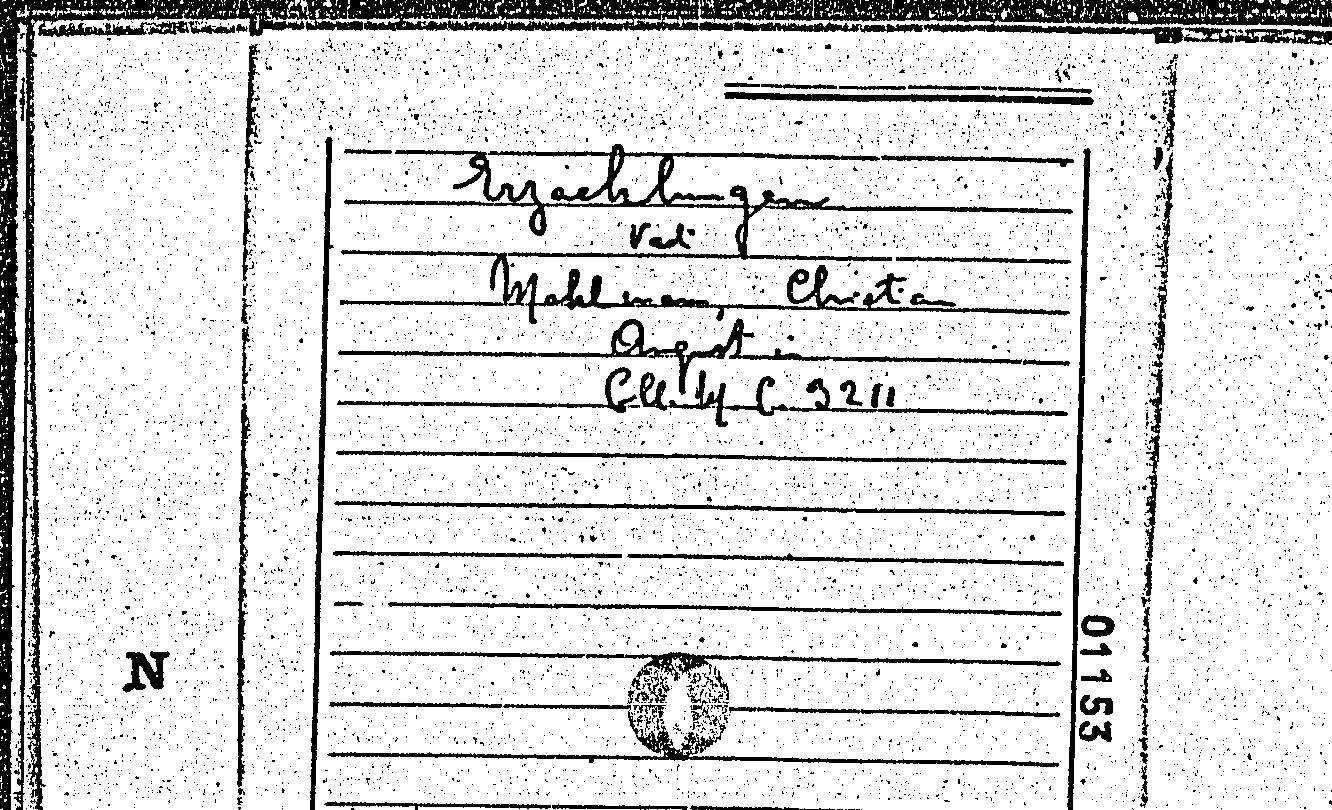 Erzaehlungen
Vad:
Mahlmann, Christian
August in
C. 3211
N
01153